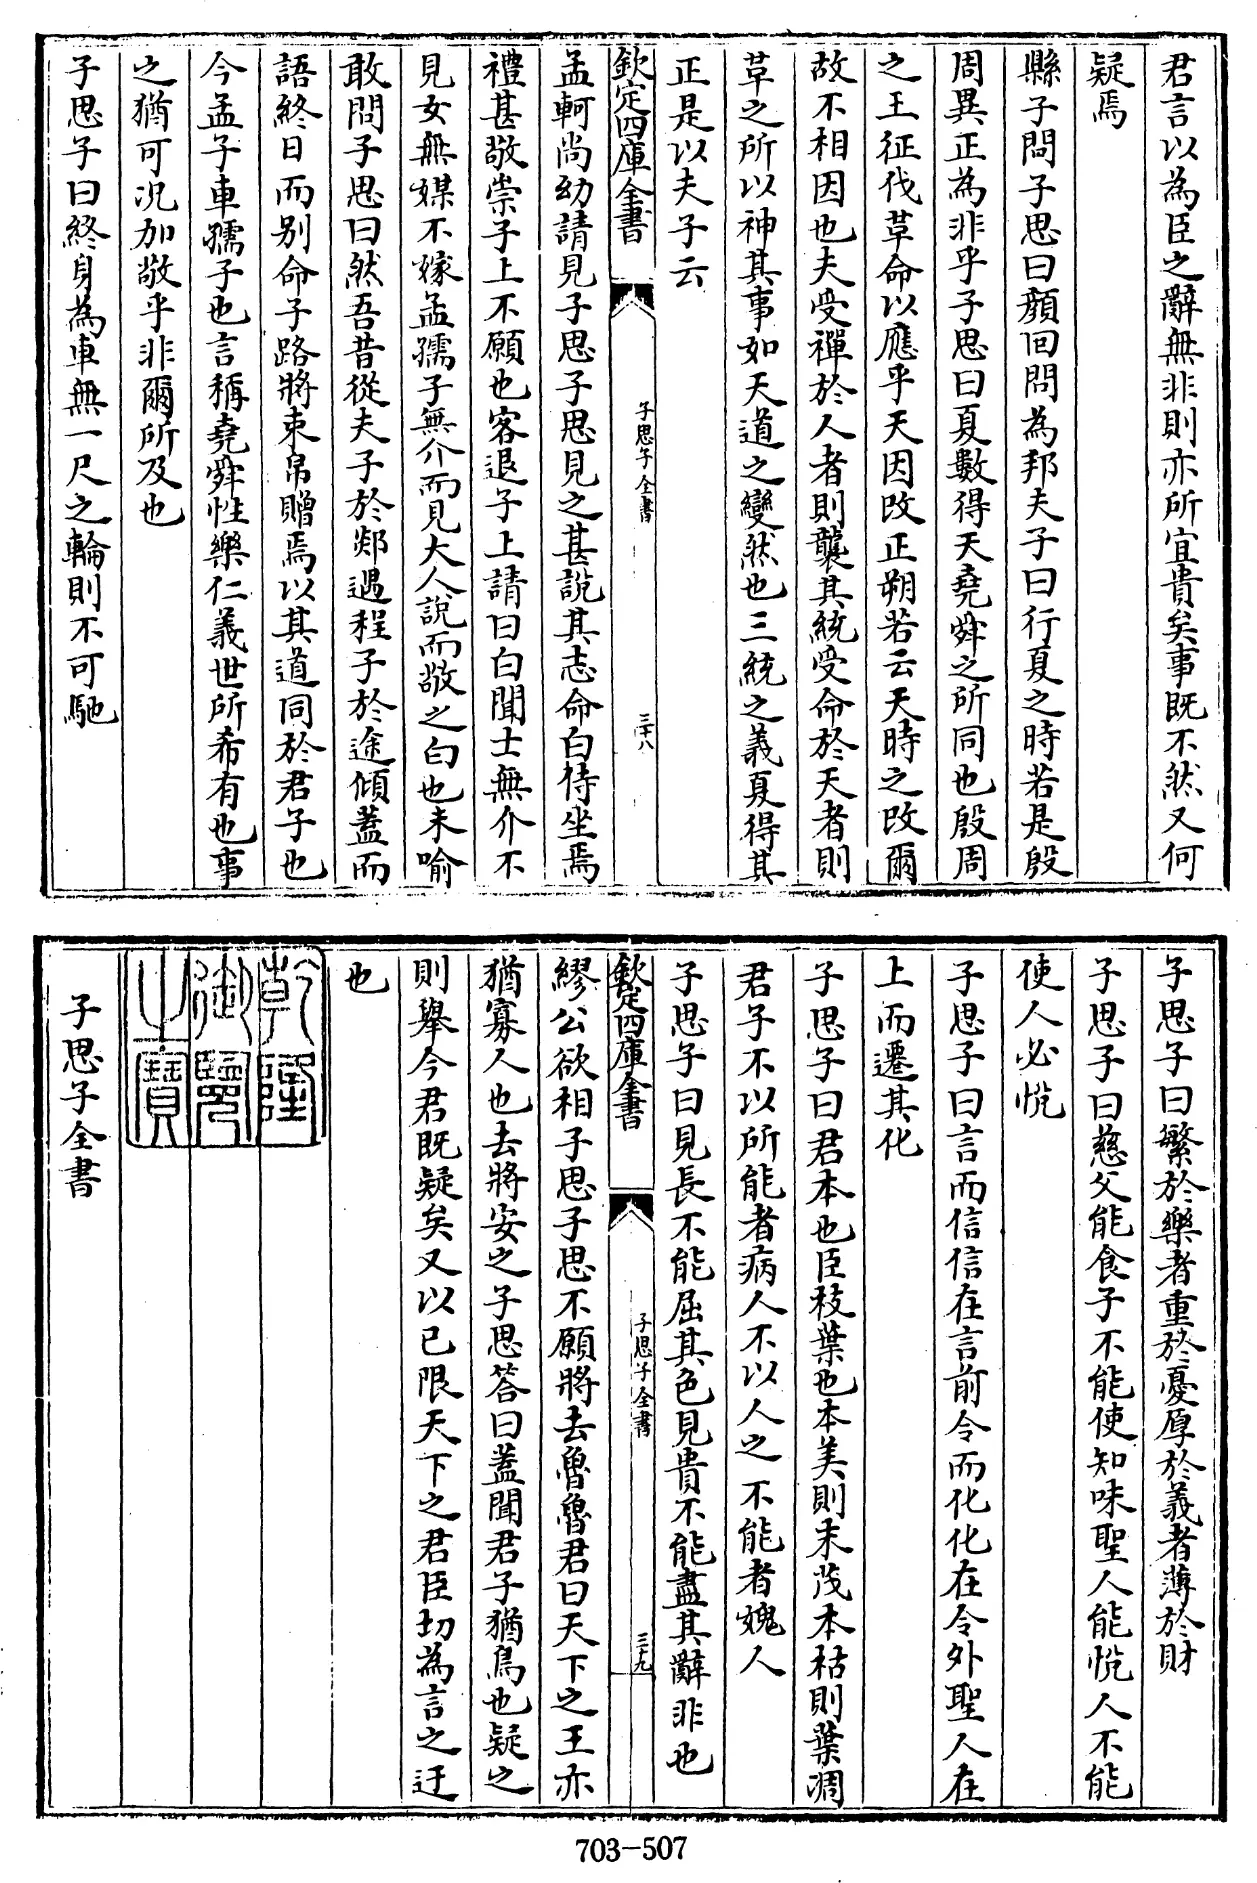 君言以為臣之辭無非則亦所宜貴矣事既不然又何
疑焉
縣子問子思曰顏回問為邦夫子曰行夏之時若是殷
周異正為非乎子思曰夏數得天堯舜之所同也殷周
之王征伐革命以應乎天因改正朔若云天時之改爾
故不相因也夫受禪於人者則襲其統受命於天者則
革之所以神其事如天道之變然也三統之義夏得其
正是以夫子云
欽定四庫全書
子思子全書
三十八
孟軻尚幼請見子思子思見之甚說其志命白侍坐焉
禮甚敬崇子上不願也客退子上請曰白聞士無介不
見女無媒不嫁孟孺子無介而見大人說而敬之白也未喻
敢問子思曰然吾昔從夫子於郯遇程子於途傾蓋而
語終日而别命子路將束帛贈焉以其道同於君子也
今孟子車孺子也言稱堯舜性樂仁義世所希有也事
之猶可况加敬乎非爾所及也
子思子曰終身為車無一尺之輪則不可馳
子思子曰繁於樂者重於憂厚於義者薄於財
子思子曰慈父能食子不能使知味聖人能悅人不能
使人必悅
子思子曰言而信信在言前令而化化在令外聖人在
上而遷其化
子思子曰君本也臣枝葉也本美則末茂本枯則葉凋
君子不以所能者病人不以人之不能者媿人
子思子曰見長不能屈其色見貴不能盡其辭非也
欽定四庫全書
子思子全書
三十九
繆公欲相子思子思不願將去魯魯君曰天下之王亦
猶寡人也去將安之子思答曰蓋聞君子猶鳥也疑之
則舉今君既疑矣又以已限天下之君臣切為言之迂
也
乾隆
御覽
之寶
子思子全書
703-507